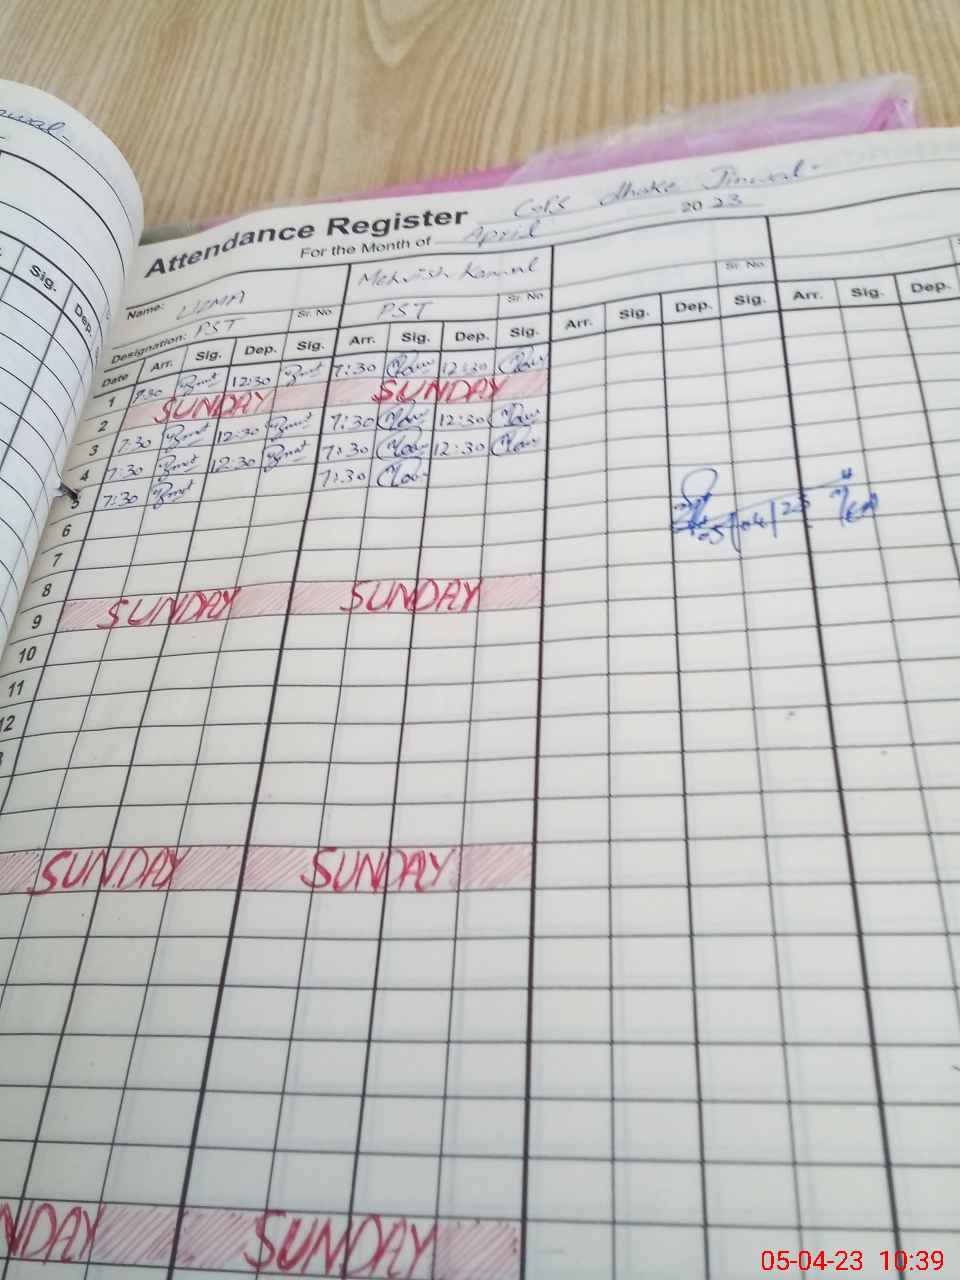 Attendance Register GGPS Dhoke Jinwal.
For the Month of April 2023
Name: UZMA Mehvish Kanwal
Designation: PST Sr. No PST Sr. No Sr. No
Date Arr. Sig. Dep. Sig. Arr. Sig. Dep. Sig. Arr. Sig. Dep. Sig. Arr. Sig. Dep.
Sig. Dep.
1 7:30 12:30 7:30 12:30
2 SUNDAY SUNDAY
3 7:30 12:30 7:30 12:30
4 7:30 12:30 7:30 12:30
5 7:30 7:30
05/04/23
6
7
8
9 SUNDAY SUNDAY
10
11
12
SUNDAY SUNDAY
NDAY SUNDAY
05-04-23 10:39